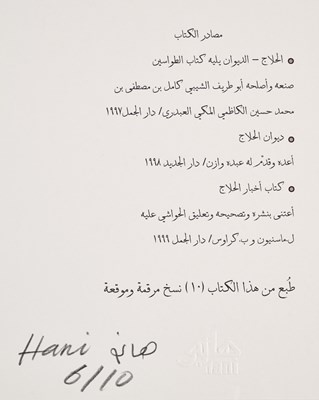 مصادر الكتاب
● الحلاج – الديوان يليه كتاب الطواسين
صنعه وأصلحه أبو طريف الشيبي كامل بن مصطفى بن
محمد حسين الكاظمي المكي العبدري/ دار الجمل ١٩٩٧
● ديوان الحلاج
أعده وقدّم له عبده وازن/ دار الجديد ١٩٩٨
● كتاب أخبار الحلاج
أعتنى بنشره وتصحيحه وتعليق الحواشي عليه
ل.ماسنيون و ب.كراوس/ دار الجمل ١٩٩٩
طُبع من هذا الكتاب (١٠) نسخ مرقمة وموقعة
Hani هاني
6/10